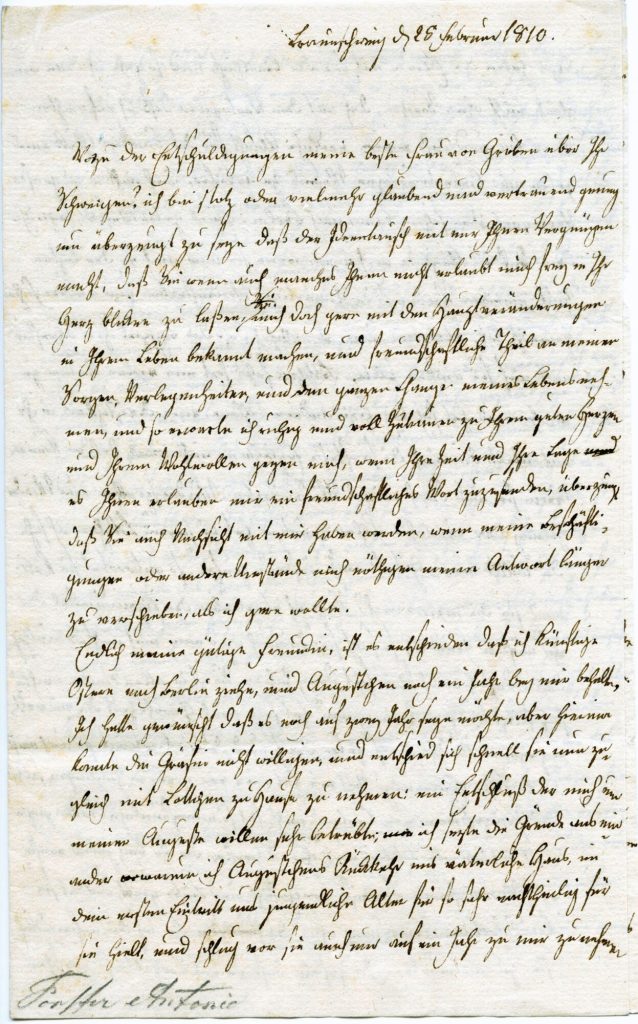 Braunschweig d 25 Februar 1810.
Wozu der Entschuldigungen meine beste Frau von Gröben über Ihr
Schweigen? ich bin stolz oder vielmehr glaubend und vertrauend genug
um überzeugt zu seyn daß der Ideentausch mit mir Ihnen Vergnügen
macht, daß Sie wenn auch manches Ihnen nicht erlaubt mich frey in Ihr
Herz blicken zu laßen, Sie mich doch gern mit den Hauptveränderungen
in Ihrem Leben bekannt machen, und freundschaftliche Theil an meinen
Sorgen, Verlegenheiten, und den ganzen Gange meines Lebens neh-
men, und so erwarte ich ruhig und voll Zutrauen zu Ihrem guten Herzen
und Ihrem Wohlwollen gegen mich, wenn Ihre Zeit und Ihre Lage
es Ihnen erlauben mir ein freundschaftliches Wort zuzusenden, überzeugt
daß Sie auch Nachsicht mit mir haben werden, wenn meine Beschäfti-
gungen oder andere Umstände mich nöthigen meine Antwort länger
zu verschieben, als ich gern wollte.
Endlich meine gütige Freundin, ist es entschieden daß ich künftige
Ostern nach Berlin ziehe, und Augustchen noch ein Jahr bey mir behalte,
Ich hatte gewünscht daß es noch auf zwey Jahr seyn möchte, aber hierin
konnte die Gräfin nicht willigen, und entschied sich schnell sie nun zu-
gleich mit Lottchen zu Hause zu nehmen: ein Entschluß der mich um
meiner Auguste willen sehr betrübte; ich sezte die Gründe aus ein
ander warum ich Augustchens Rückkehr ins väterliche Haus, in
dem ersten Eintritt ins jugendliche Alter für so sehr nachtheilig für
sie hielt, und schlug vor sie auch nur auf ein Jahr zu mir zu nehmen
Antonie